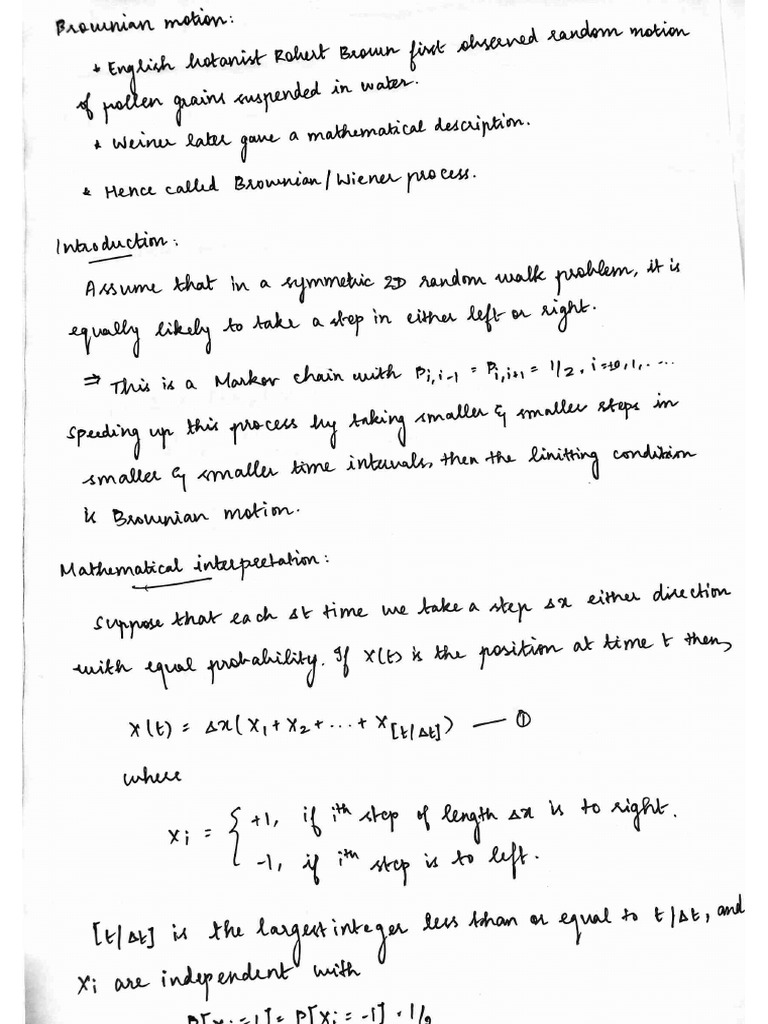 Brownian motion:
* English botanist Robert Brown first observed random motion
of pollen grains suspended in water.
* Weiner later gave a mathematical description.
* Hence called Brownian/Wiener process.
Introduction:
Assume that in a symmetric 2D random walk problem, it is
equally likely to take a step in either left or right.
⇒ This is a Markov chain with P_{i,i-1} = P_{i,i+1} = 1/2, i=±0,1,....
Speeding up this process by taking smaller & smaller steps in
smaller & smaller time intervals, then the limitting condition
is Brownian motion.
Mathematical interpretation:
Suppose that each Δt time we take a step Δx either direction
with equal probability. If X(t) is the position at time t then,
X(t) = Δx(X₁+X₂+...+X_{[t/Δt]}) — ①
where
Xi = { +1, if iᵗʰ step of length Δx is to right.
-1, if iᵗʰ step is to left.
[t/Δt] is the largest integer less than or equal to t/Δt, and
Xi are independent with
P[Xi=1] = P[Xi = -1] = 1/2